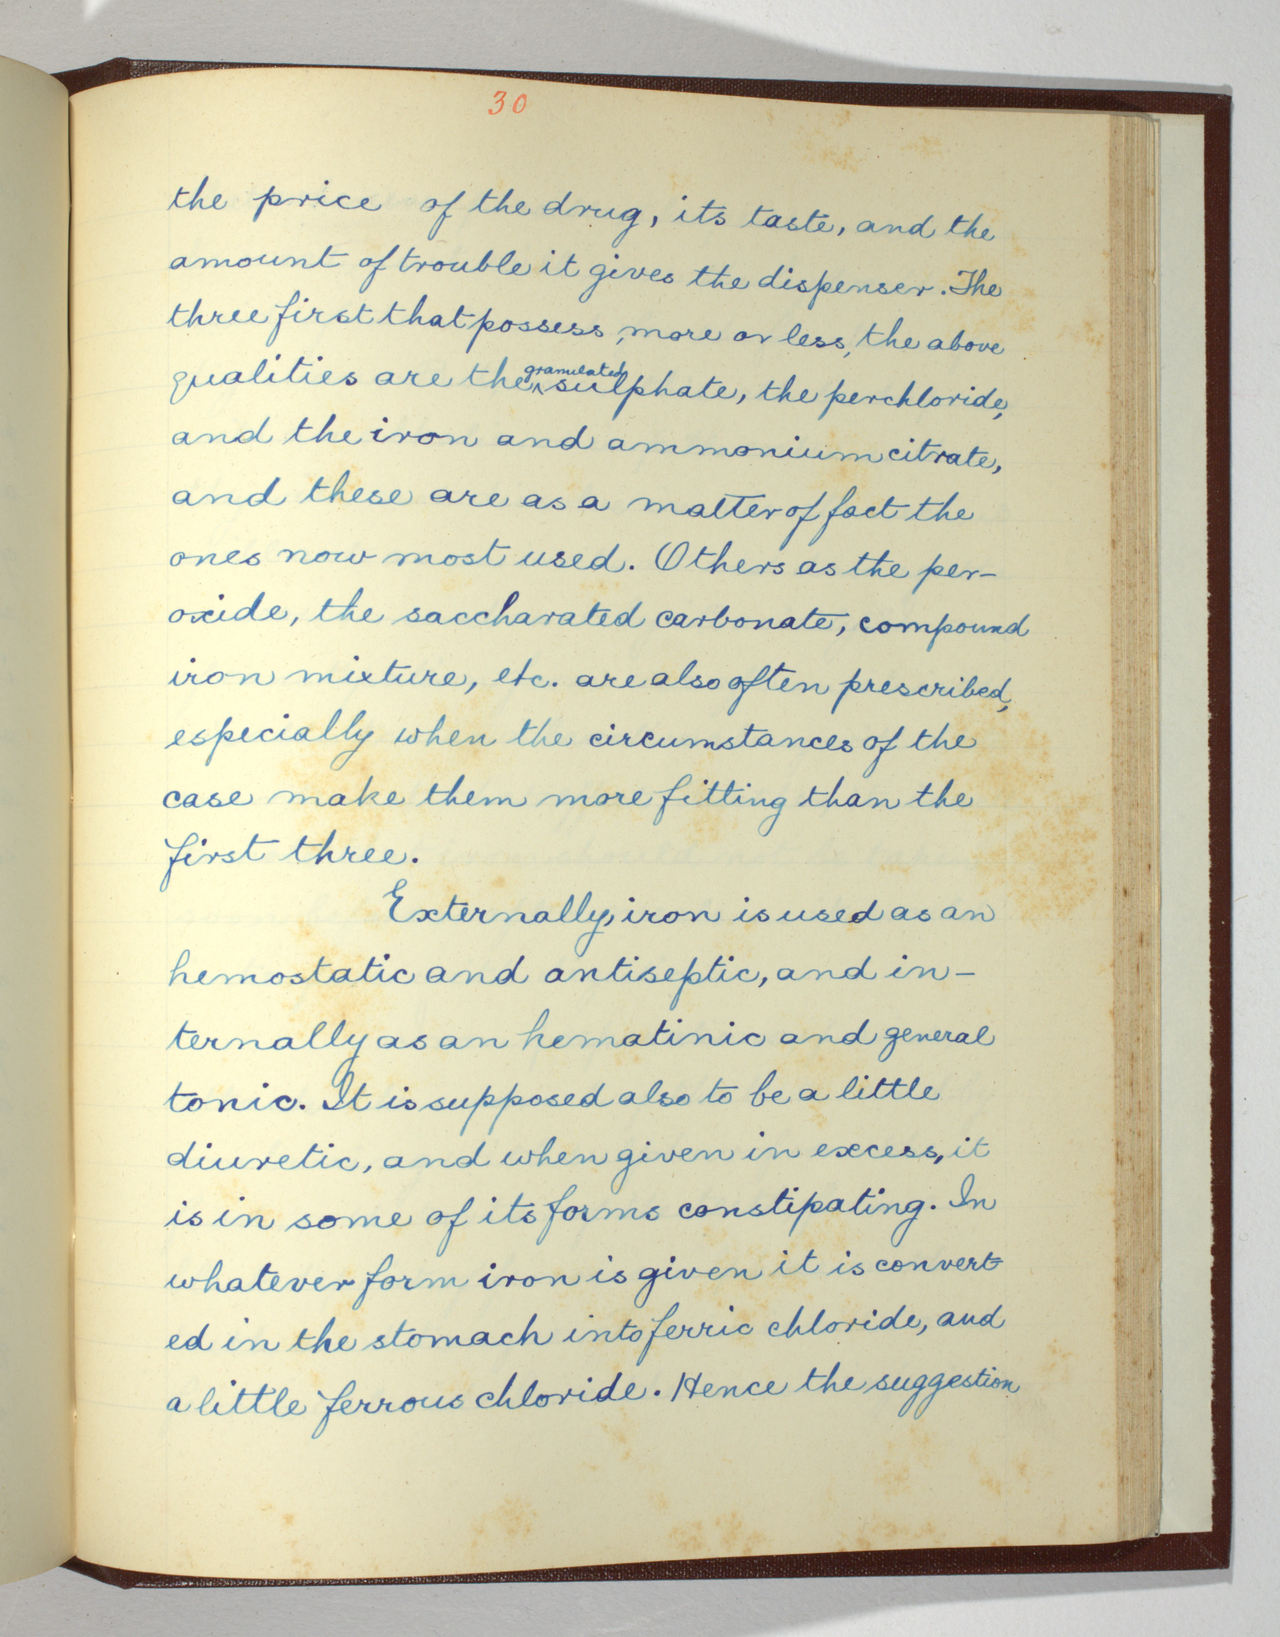 30
the price of the drug, its taste, and the
amount of trouble it gives the dispenser. The
three first that possess, more or less, the above
qualities are the granulated sulphate, the perchloride,
and the iron and ammonium citrate,
and these are as a matter of fact the
ones now most used. Others as the per-
oxide, the saccharated carbonate, compound
iron mixture, etc. are also often prescribed,
especially when the circumstances of the
case make them more fitting than the
first three.
Externally, iron is used as an
hemostatic and antiseptic, and in-
ternally as an hematinic and general
tonic. It is supposed also to be a little
diuretic, and when given in excess, it
is in some of its forms constipating. In
whatever form iron is given it is convert-
ed in the stomach into ferric chloride, and
a little ferrous chloride. Hence the suggestion